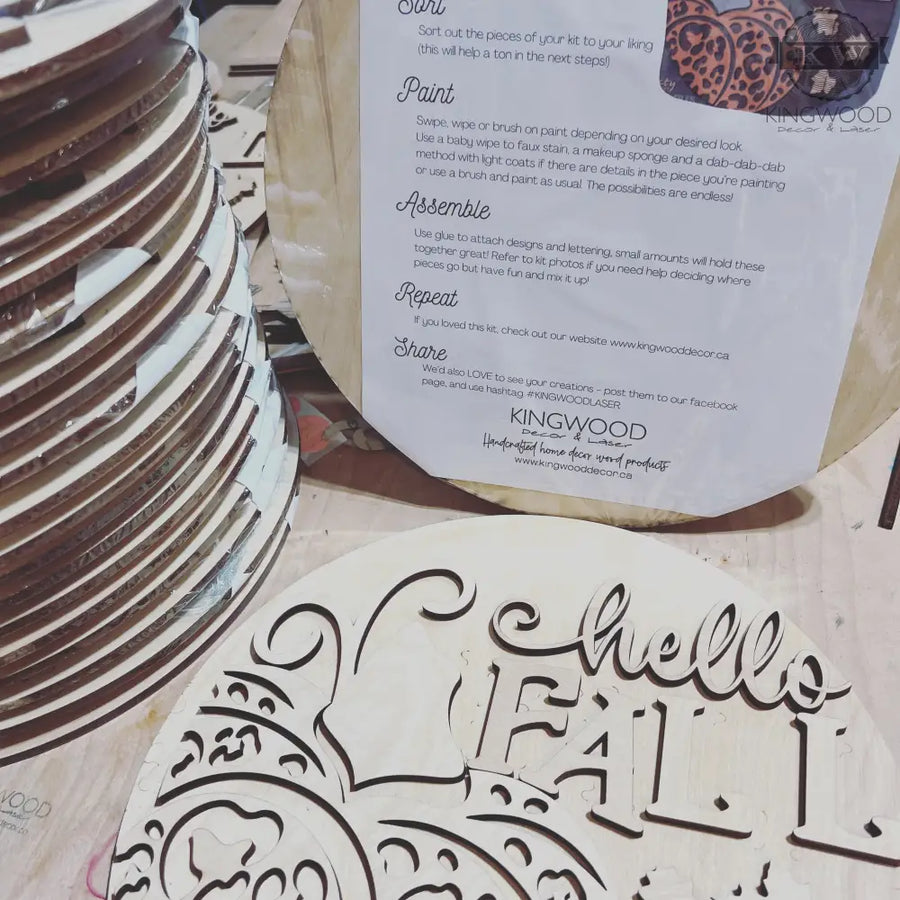 Sort
Sort out the pieces of your kit to your liking
(this will help a ton in the next steps!)
Paint
Swipe, wipe or brush on paint depending on your desired look.
Use a baby wipe to faux stain, a makeup sponge and a dab-dab-dab
method with light coats if there are details in the piece you're painting
or use a brush and paint as usual. The possibilities are endless!
Assemble
Use glue to attach designs and lettering, small amounts will hold these
together great! Refer to kit photos if you need help deciding where
pieces go but have fun and mix it up!
Repeat
If you loved this kit, check out our website www.kingwooddecor.ca
Share
We'd also LOVE to see your creations - post them to our facebook
page, and use hashtag #KINGWOODLASER
KINGWOOD
Decor & Laser
Handcrafted home decor wood products
www.kingwooddecor.ca
KW
KINGWOOD
Decor & Laser
hello
FALL
WOOD